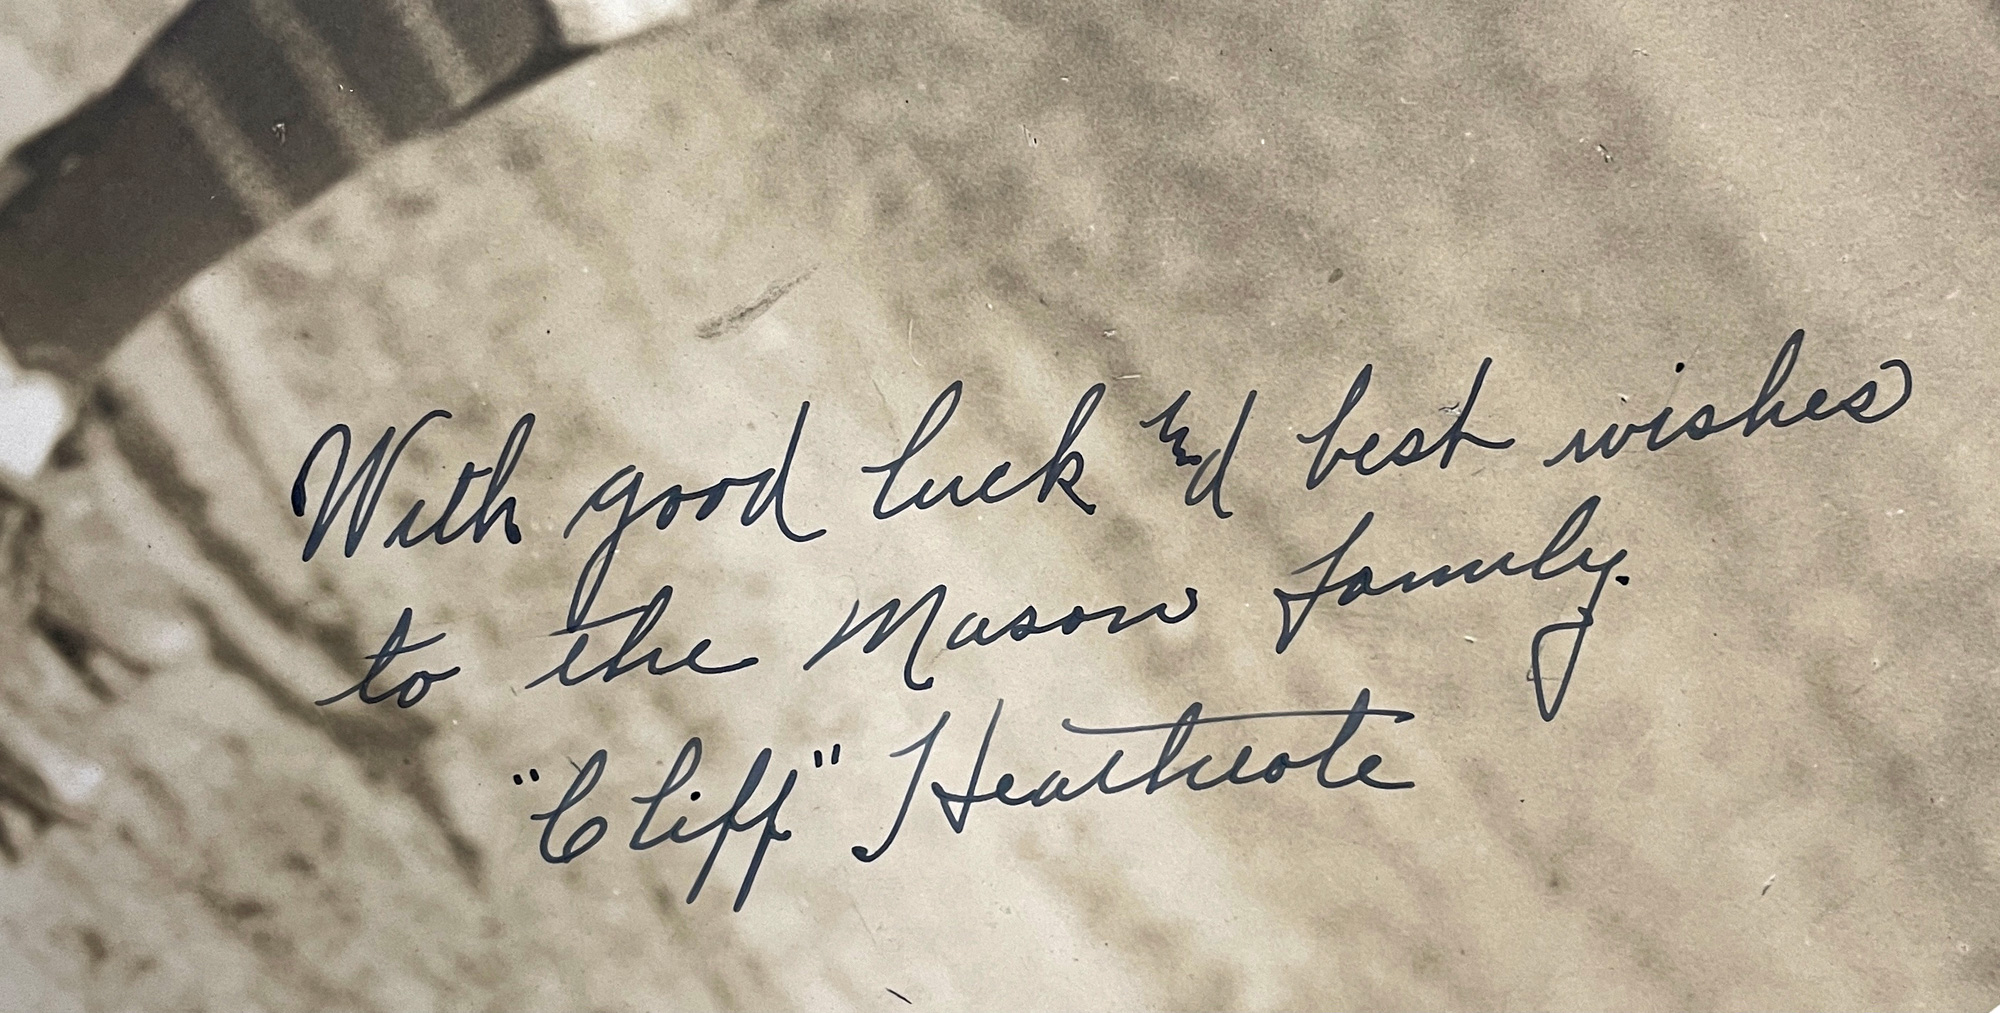 With good luck & best wishes
to the Mason family.
"Cliff" Heathcote